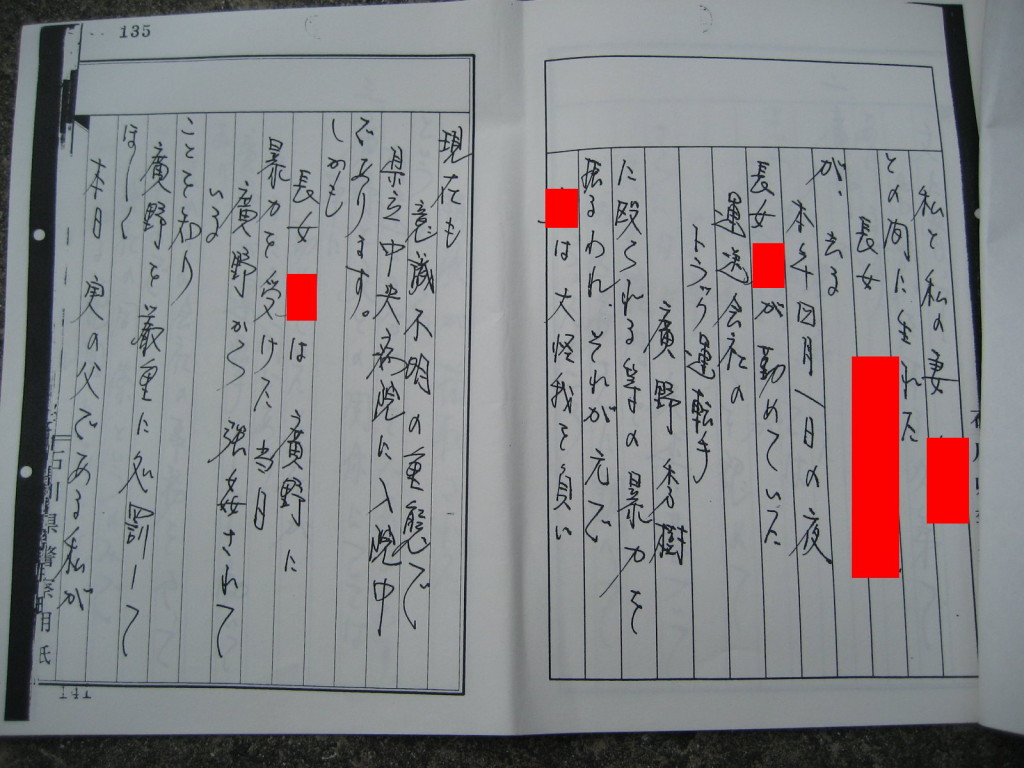 私と私の妻
との間に生れた
長女
が、去る
本年四月一日の夜
長女
が勤めていた
運送会社の
トラック運転手
廣野秀樹
に殴られる等の暴力を
振るわれ、それが元で
は大怪我を負い
135
現在も
意識不明の重態で
県立中央病院に入院中
であります。
しかも
長女
は廣野に
暴力を受けた当日
廣野から強姦されて
いる
ことを知り
廣野を厳重に処罰して
ほしく
本日実の父である私が
石川県警察
用紙
141